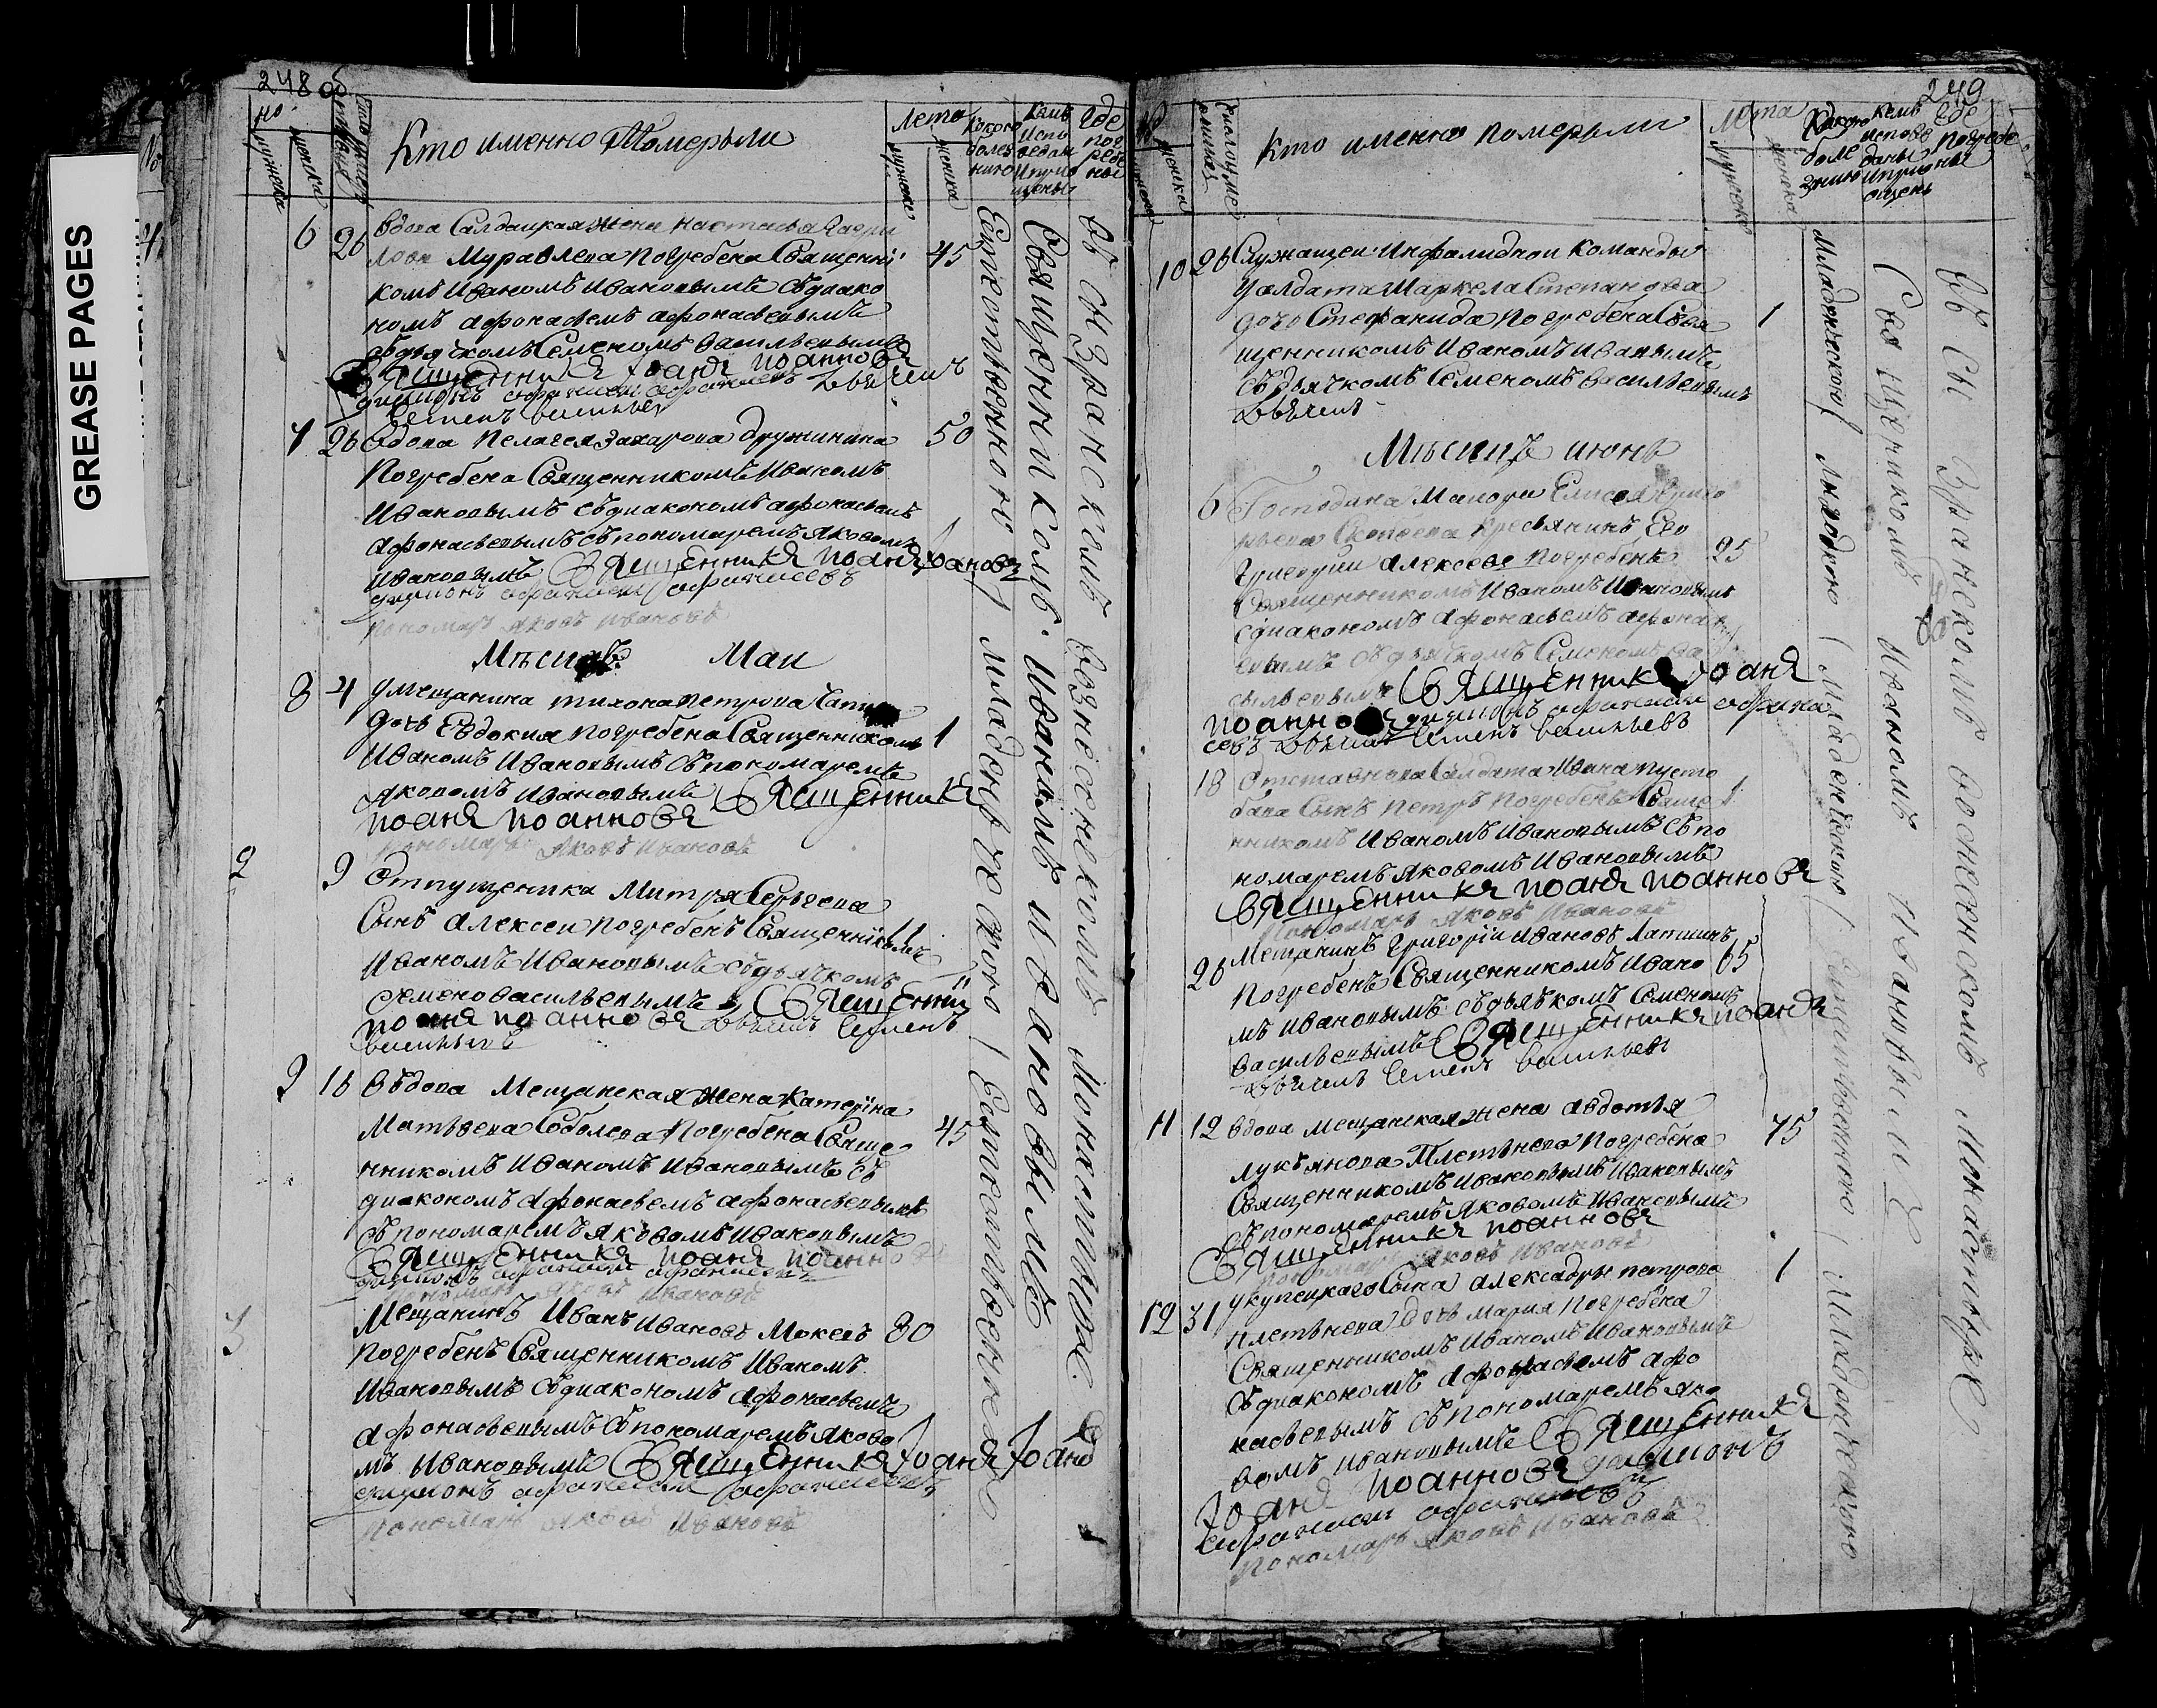 GREASE PAGES
248 об
№
мужеска
женска
Кто именно Померыли
Лета
мужеска
женска
какою болезнию
Кемъ исповеданы и приобщены
Где погребены
6 26 вдова Салдацкая Жена Настасья Гаври
лова Муравлева Погребена Священни 45
комъ Иваномъ Ивановымъ Съдиако
номъ Афонасьемъ Афонасьевымъ
съдьячкомъ Семеномъ Васильевымъ
Священникъ Иоаннъ Иоанновъ
диаконъ Афанасей Афанасьевъ Дьячекъ
Семенъ Васильевъ
7 26 Вдова Пелагея Захарова Дружинина 50
Погребена Священникомъ Иваномъ
Ивановымъ съдиакономъ Афонасьемъ
Афонасьевымъ съпономаремъ Яковомъ
Ивановымъ Священникъ Иоаннъ Иоанновъ
диаконъ Афанасей Афанасьевъ
Пономарь Яковъ Ивановъ
Месяцъ Маи
8 4 Умещанина Тихона Петрова
дочь Евдокия Погребена Священникомъ 1
Иваномъ Ивановымъ Съпономаремъ
Яковомъ Ивановымъ Священникъ
Иоаннъ Иоанновъ
Пономарь Яковъ Ивановъ
2 9 Отпущеника Митрея Сергеева
Сынъ Алексеи Погребенъ Священникомъ 11
Иваномъ Ивановымъ съдьячкомъ
Семено Васильевымъ Священни
Иоаннъ Иоанновъ Дьячекъ Семенъ
Васильевъ
9 16 Въдова Мещанская Жена Катерина
Матвеева Соболева Погребена Свяще 45
нникомъ Иваномъ Ивановымъ съ
диакономъ Афонасьемъ Афонасьевымъ
Съпономаремъ Яковомъ Ивановымъ
Священникъ Иоаннъ Иоанновъ
диаконъ Афанасей Афанасьевъ
Пономарь Яковъ Ивановъ
3 Мещанинъ Иванъ Ивановъ Мокеевъ 80
Погребенъ Священникомъ Иваномъ
Ивановымъ Съдиакономъ Афонасьемъ
Афонасьевымъ Съпономаремъ Яково
мъ Ивановымъ Священникъ Иоаннъ Иоанно
диаконъ Афанасей Афанасьевъ
Пономарь Яковъ Ивановъ
Естественною младенческою Естественною
Священникомъ Иваномъ Ивановымъ
Въ Сызранскомъ Вознесенскомъ Монастыре
249
Кто именно померыли
Лета
мужеска
женска
Какою болезнию
Кемъ исповеданы и приобщены
Где погребены
10 26 Служащеи Инфалиднои Команды
Солдата Маркела Степанова
дочь Стефанида Погребена Свя 1
щенникомъ Иваномъ Ивановымъ
Съдьячкомъ Семеномъ Васильевымъ
Дьячекъ
Месяцъ июнь
6 Господина Маиора Елисея Григо
рьева крестьянинъ Его
Григореи Алексеевъ Погребенъ 25
Священникомъ Иваномъ Ивановымъ
Сдиакономъ Афонасьемъ Афонась
евымъ Съдьячкомъ Семеномъ Ва
сильевымъ Священникъ Иоаннъ
Иоанновъ диаконъ Афанасей Афана
сьевъ Дьячекъ Семенъ Васильевъ
18 Отставнова Салдата Ивана Пусто
баева Сынъ Петръ Погребенъ Свяще 1
нникомъ Иваномъ Ивановымъ Съпо
номаремъ Яковомъ Ивановымъ
Священникъ Иоаннъ Иоанновъ
Пономарь Яковъ Ивановъ
26 Мещанинъ Григорiи Ивановъ Лапшинъ 65
Погребенъ Священникомъ Ивано
мъ Ивановымъ съдьячкомъ Семеномъ
Васильевымъ Священникъ Иоаннъ
Дьячекъ Семенъ Васильевъ
11 12 Вдова мещанская жена Авдотья
Лукьянова Плетьнева Погребена 75
Священникомъ Ивановымъ Ивановымъ
Съпономаремъ Яковомъ Ивановымъ
Священникъ Иоанновъ
Пономарь Яковъ Ивановъ
12 31 Укупецкаго Сына Александры Петрова 1
Плетьнева дочь Мария Погребена
Священникомъ Иваномъ Ивановымъ
Съдиакономъ Афонасьемъ Афо
насьевымъ Съпономаремъ Яко
вомъ Ивановымъ Священникъ
Иоаннъ Иоанновъ диаконъ
Афанасей Афанасьевъ
Пономарь Яковъ Ивановъ
Младенческою
Священникомъ Иваномъ Ивановымъ
Въ Сызранскомъ Вознесенскомъ Монастыре